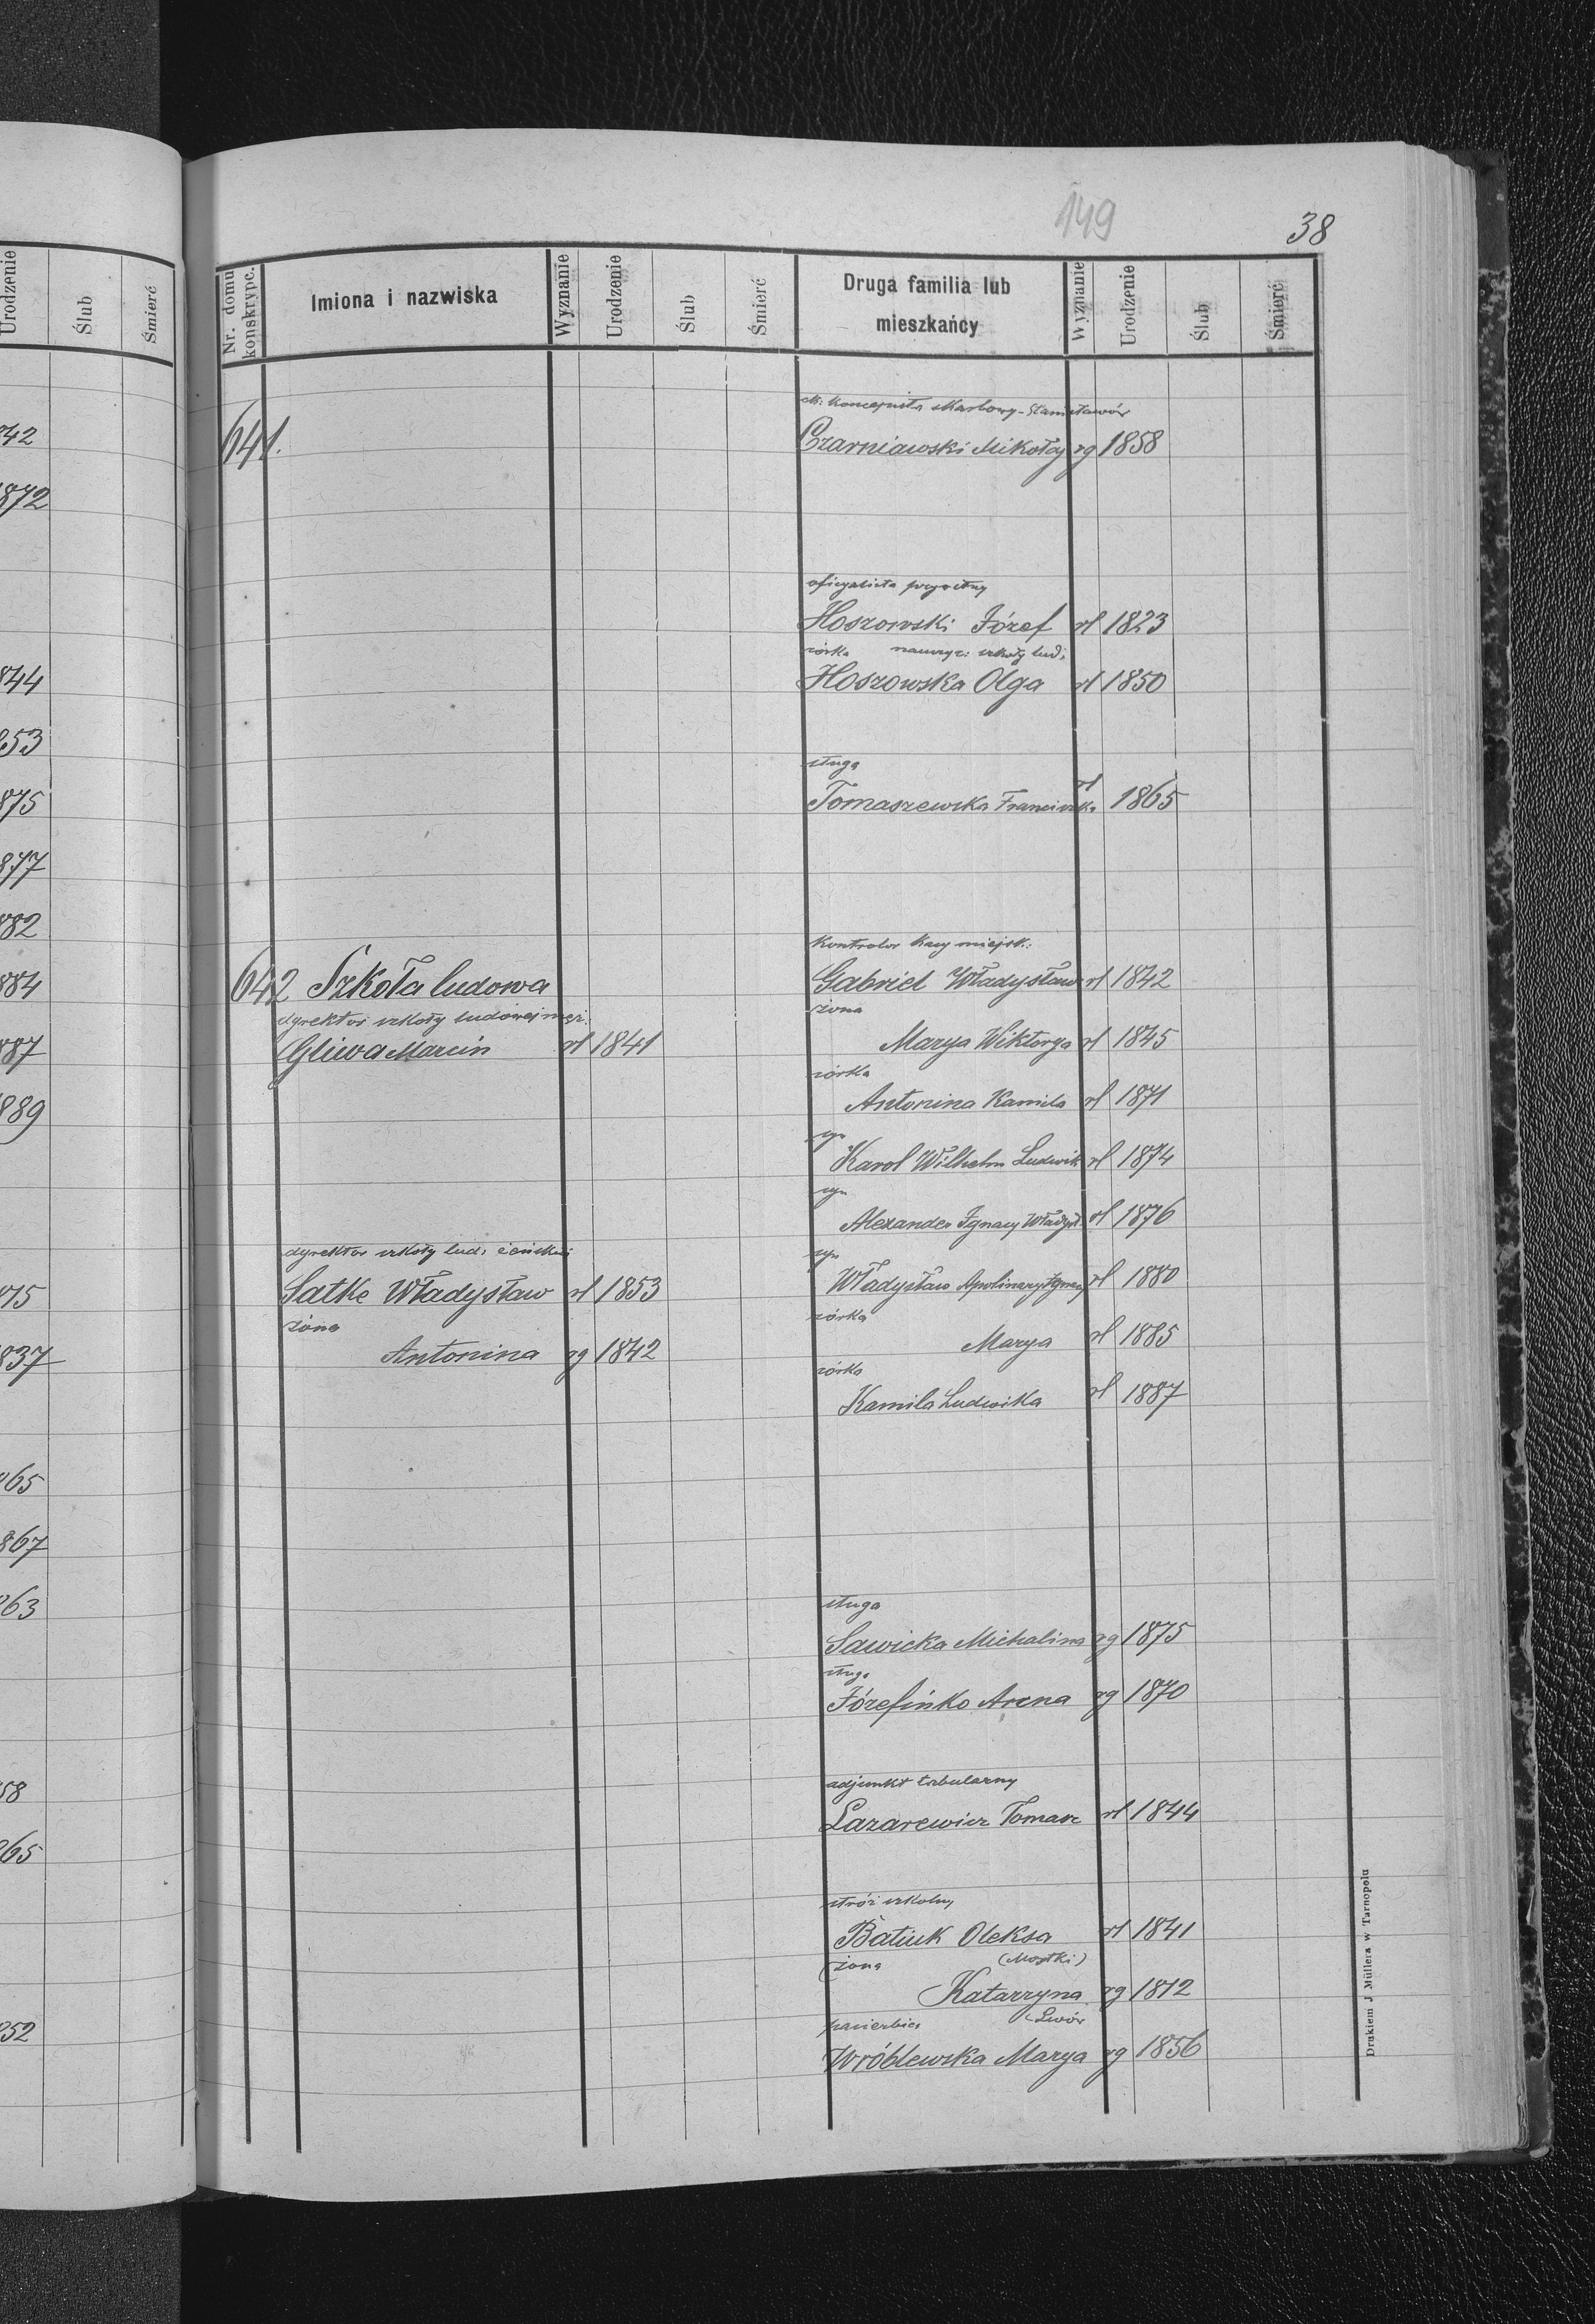 149
38
Urodzenie
Ślub
Śmierć
Nr. domu konskrypc.
Imiona i nazwiska
Wyznanie
Urodzenie
Ślub
Śmierć
Druga familia lub mieszkańcy
Wyznanie
Urodzenie
Ślub
Śmierć
ck. koncepista skarbowy - Stanisławów
641. Czarniawski Mikołaj rg 1858
oficyalista prywatny
Hoszowski Józef rł 1823
córka naucz: szkoły lud:
Hoszowska Olga rł 1850
sługa
Tomaszewska Franciszka rł 1865
kontrolor kasy miejsk:
642 Szkoła ludowa
Gabriel Władysław rł 1842
dyrektor szkoły ludowej męz:
żona
Gliwa Marcin rł 1841
Marya Wiktorya rł 1845
córka
Antonina Kamila rł 1871
syn
Karol Wilhelm Ludwik rł 1874
syn
Alexander Ignacy Władysł. rł 1876
dyrektor szkoły lud: żeńskiej
syn
Satke Władysław rł 1853
Władysław Apolinary Ignacy rł 1880
żona
córka
Antonina rg 1842
Marya rł 1885
córka
Kamila Ludwika rł 1887
sługa
Sawicka Michalina rg 1875
sługa
Józefińko Anna rg 1870
adjunkt tabularny
Lazarewicz Tomasz rł 1844
stróż szkolny
Batiuk Oleksa rł 1841
żona (Mostki)
Katarzyna rg 1812
pasierbica (Lwów
Wróblewska Marya rg 1856
Drukiem J Müllera w Tarnopolu
42
872
844
853
875
877
882
884
887
889
875
837
865
867
863
58
865
852